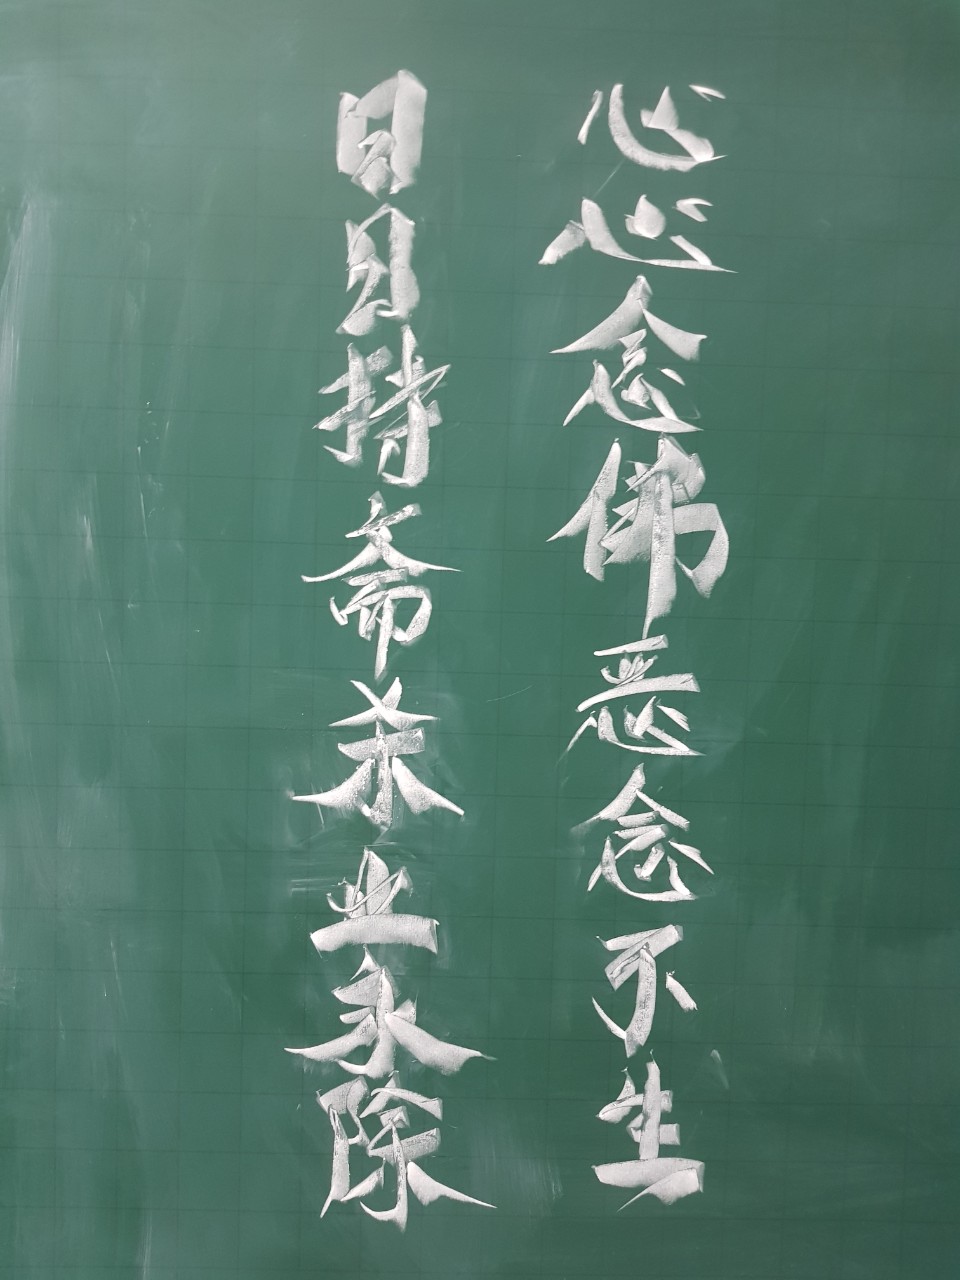 心心念佛恶念不生
日日持斋杀业永除